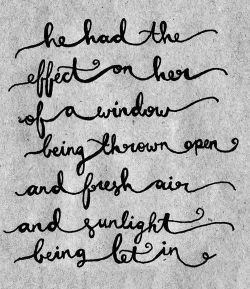 he had the
effect on her
of a window
being thrown open
and fresh air
and sunlight
being let in